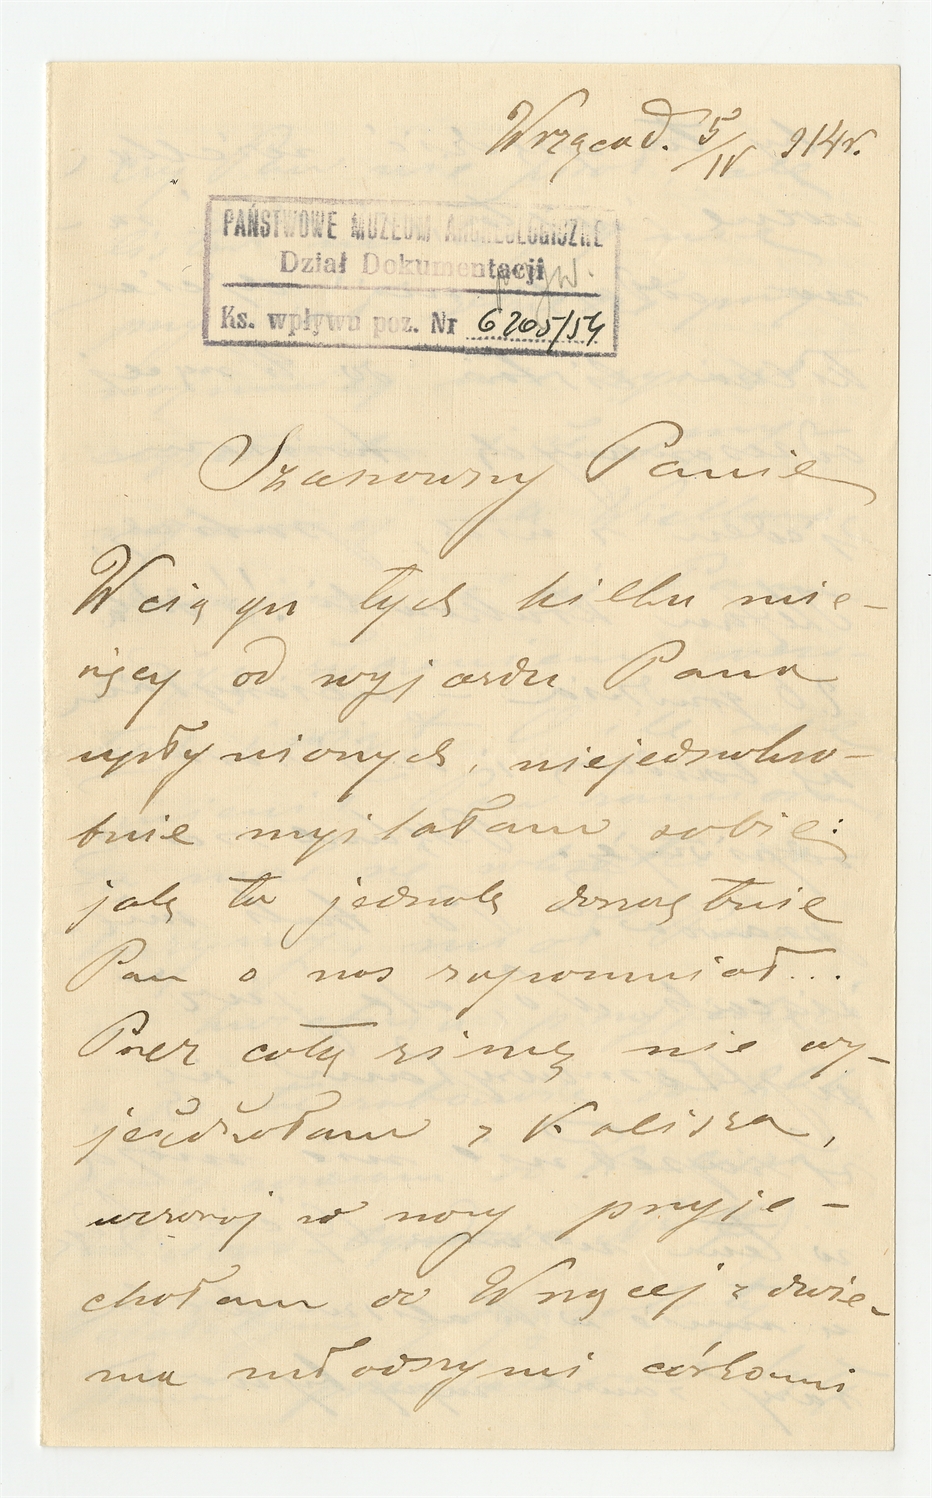 Wrząca d. 5/IV 914 r.
PAŃSTWOWE MUZEUM ARCHEOLOGICZNE
Dział Dokumentacji
Ks. wpływu poz. Nr 6205/54
Szanowny Panie
W ciągu tych kilku mie-
sięcy od wyjazdu Pana
upłynionych, niejednokro-
tnie myślałam sobie:
jak to jednak doszczętnie
Pan o nas zapomniał...
Przez całą zimę nie wy-
jeżdżałam z Kalisza,
wczoraj w nocy przyje-
chałam do Wrzącej z dwie-
ma młodszymi córkami